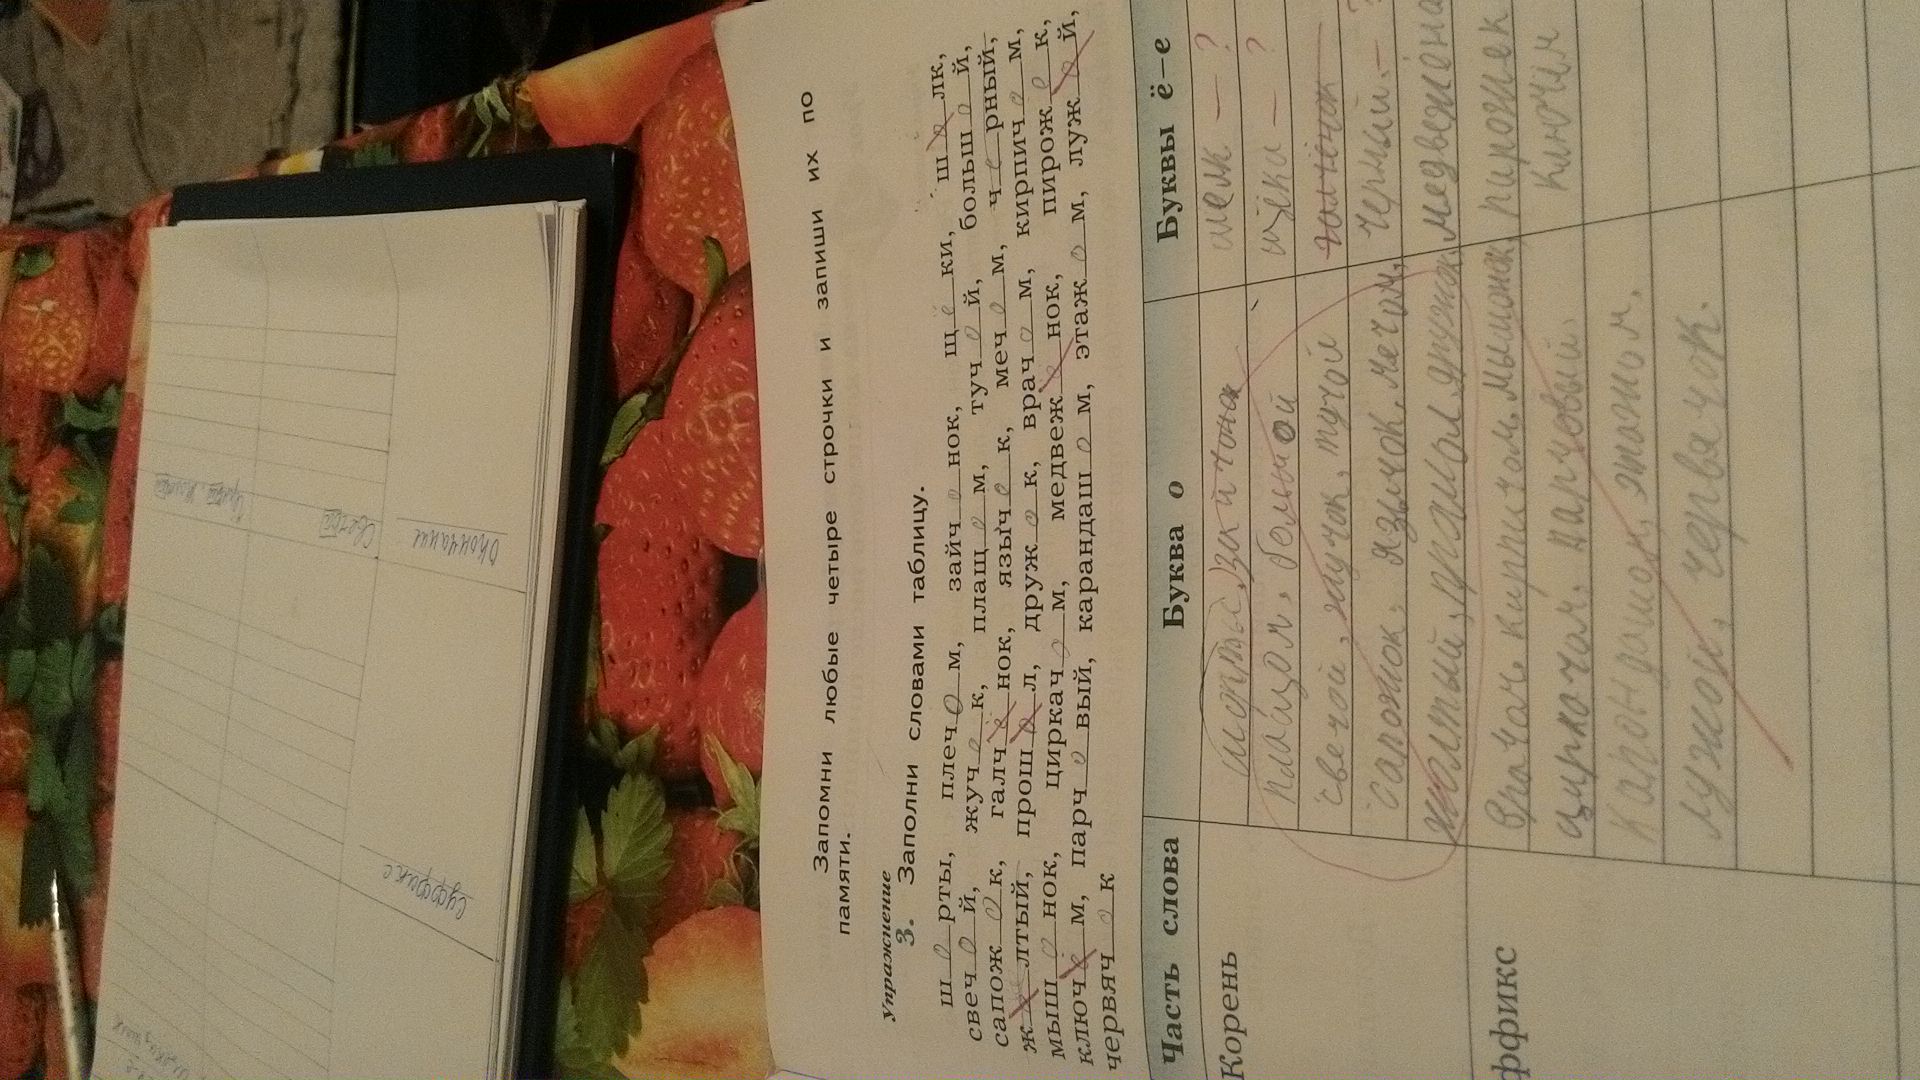 Запомни любые четыре строчки и запиши их по
памяти.
Упражнение
3. Заполни словами таблицу.
шорты, плечом, зайчонок, щёки, шолк,
свечой, жучок, плащом, тучой, большой,
сапожок, галчёнок, язычок, мечом, черный,
жолтый, прошол, дружок, врачом, кирпичом,
мышонок, циркачом, медвежёнок, пирожек,
ключём, парчовый, карандашом, этажом, лужой,
червячок
Часть слова Буква о Буквы ё–е
Корень шорты, зайчонок шелк – ?
плащом, большой щёки – ?
свечой, жучок, тучой галчёнок
сапожок, язычок, мечом, черный. – ?
жолтый, прошол, дружок, медвежёнок
ффикс врачом, кирпичом, мышонок, пирожек
циркачом, парчовый. ключем
карандашом, этажом,
лужой, червячок.
суффикс
окончание
свечой